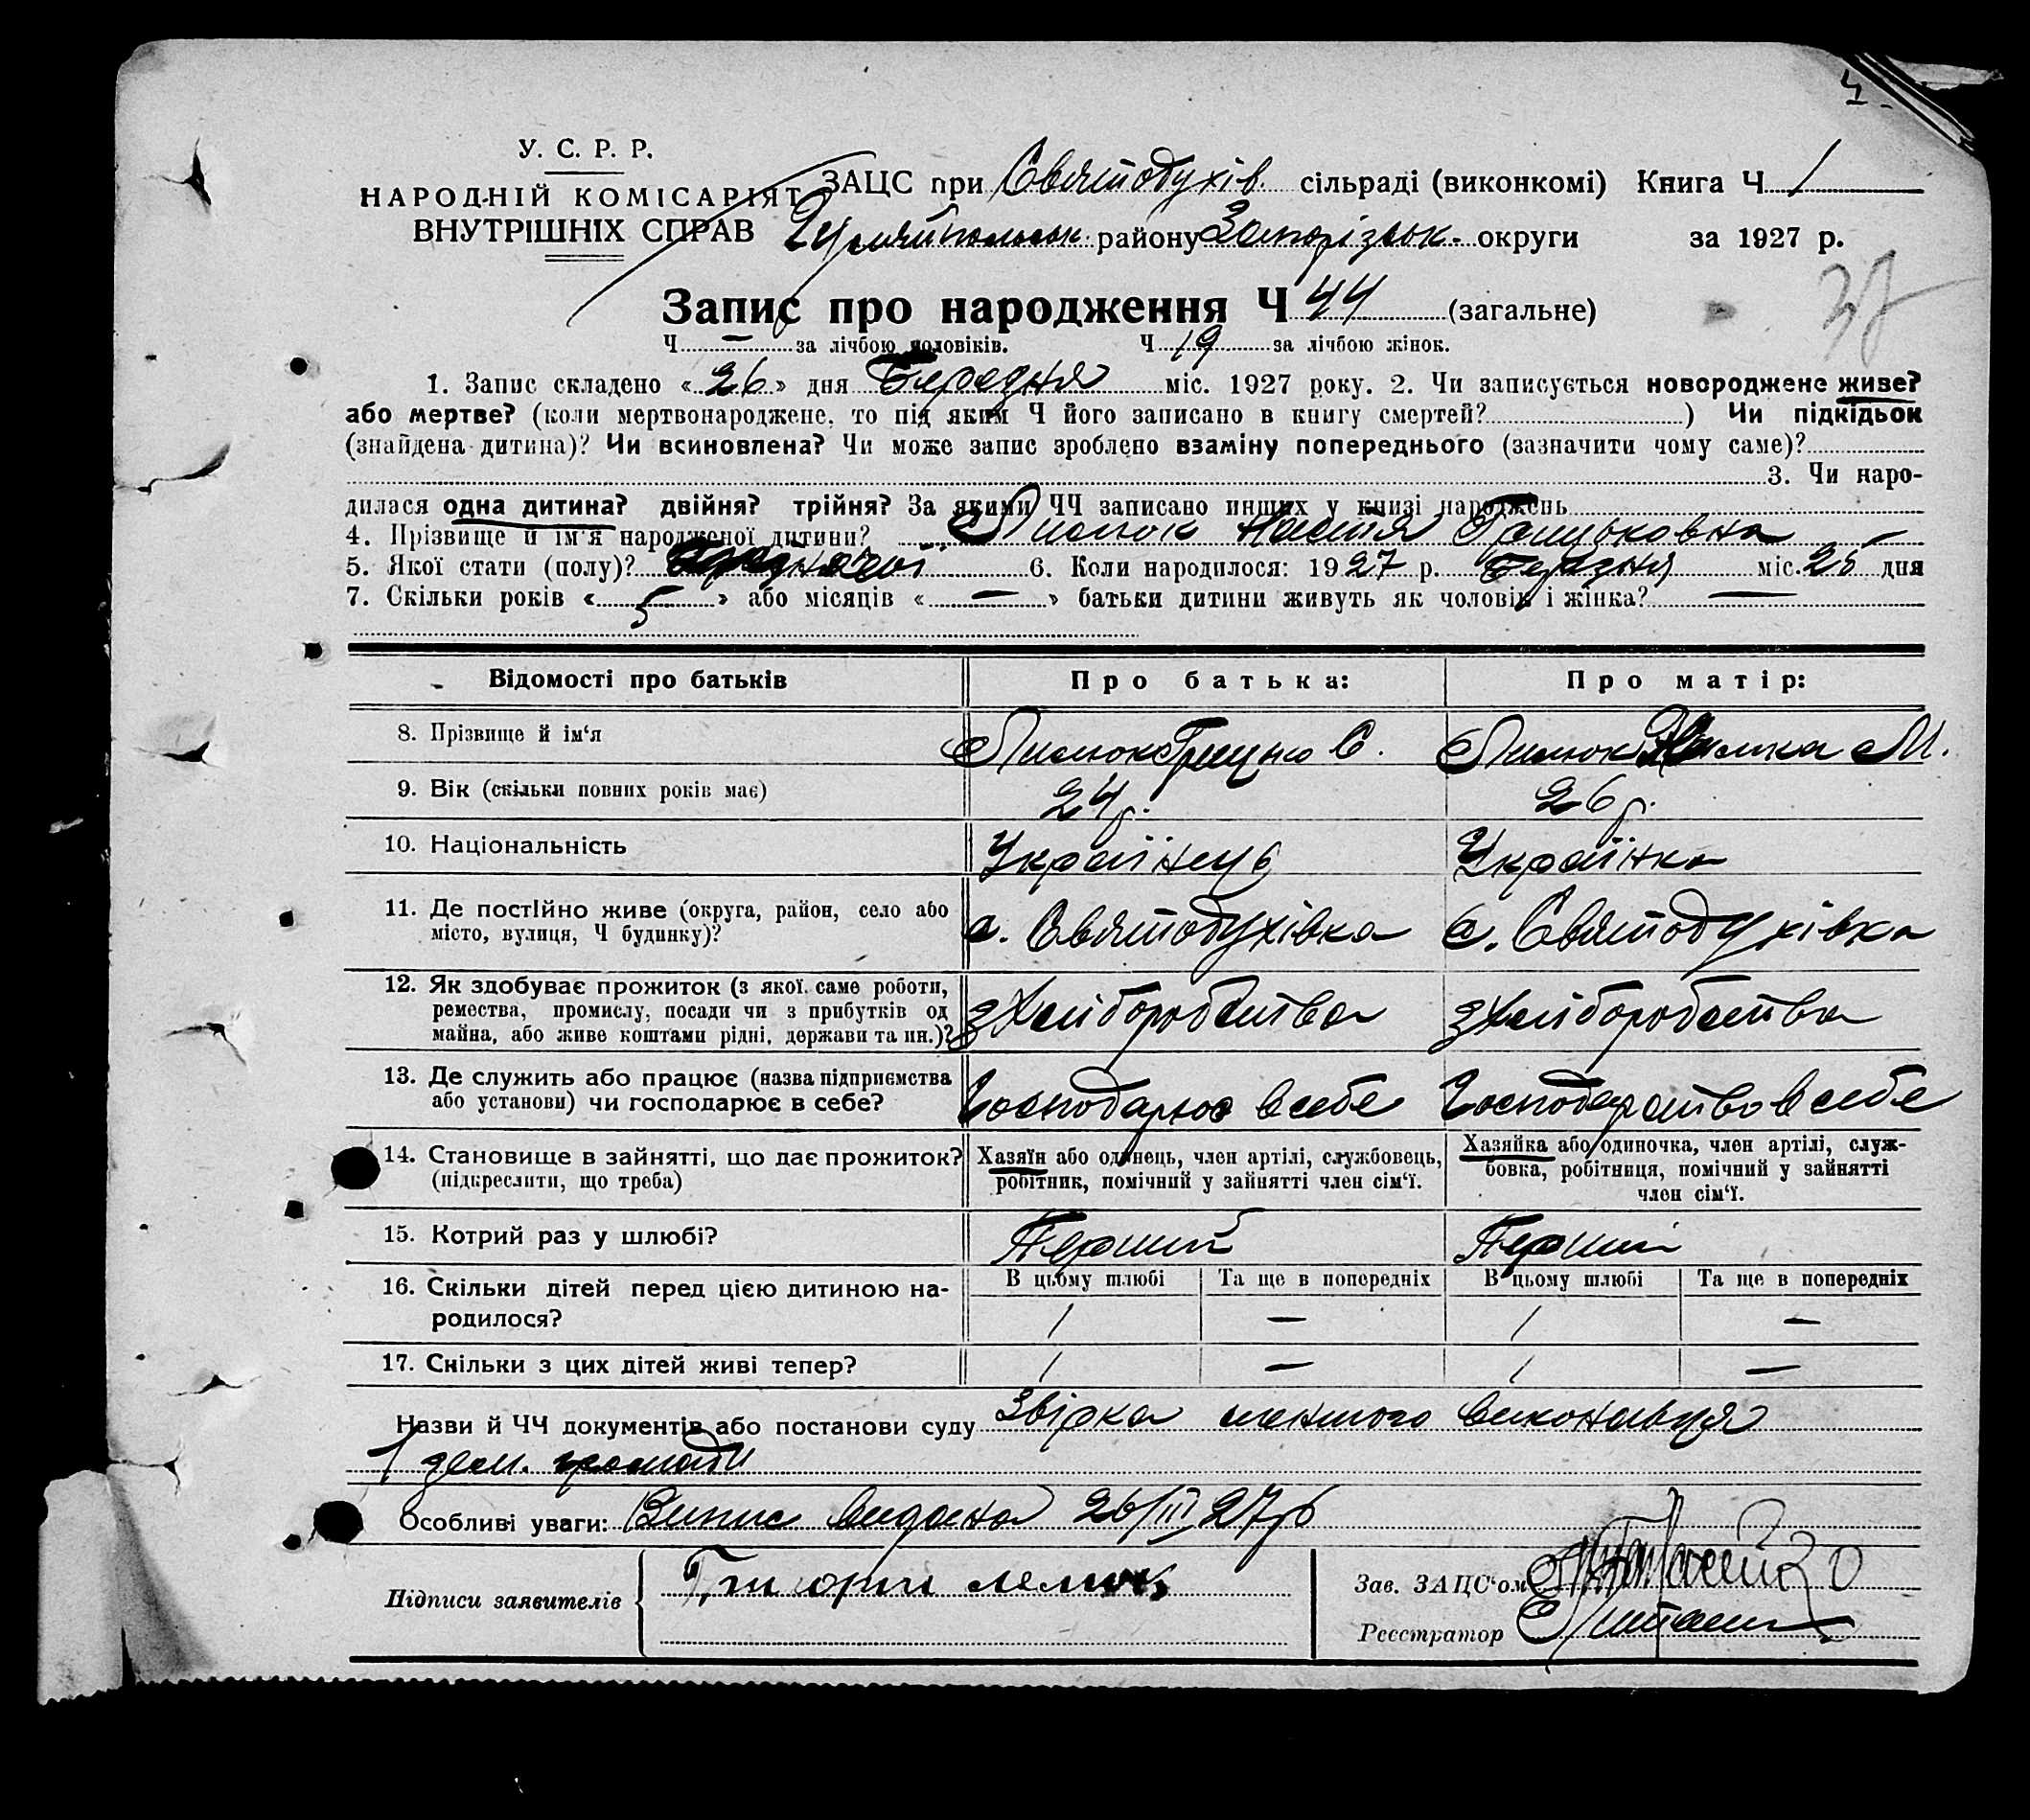 У. С. Р. Р.
НАРОДНІЙ КОМІСАРІЯТ
ВНУТРІШНІХ СПРАВ
ЗАЦС при Святодухів. сільраді (виконкомі) Книга Ч 1
району Запорізьк. округи за 1927 р.
37
Запис про народження Ч 44 (загальне)
Ч — за лічбою чоловіків. Ч 19 за лічбою жінок.
1. Запис складено « 26 » дня Березня міс. 1927 року. 2. Чи записується новороджене живе?
або мертве? (коли мертвонароджене, то під яким Ч його записано в книгу смертей? ) Чи підкідьок
(знайдена дитина)? Чи всиновлена? Чи може запис зроблено взаміну попереднього (зазначити чому саме)?
3. Чи наро-
дилася одна дитина? двійня? трійня? За якими ЧЧ записано инших у книзі народжень
4. Прізвище й ім'я народженої дитини? Настя Грицьковна
5. Якої стати (полу)? жіночої 6. Коли народилося: 1927 р. Березня міс. 25 дня
7. Скільки років « 5 » або місяців « — » батьки дитини живуть як чоловік і жінка? —
Відомості про батьків Про батька: Про матір:
8. Прізвище й ім‘я Грицько С. М.
9. Вік (скільки повних років має) 24 р. 26 р.
10. Національність Українець Українка
11. Де постійно живе (округа, район, село або
місто, вулиця, Ч будинку)? с. Святодухівка с. Святодухівка
12. Як здобуває прожиток (з якої саме роботи,
ремества, промислу, посади чи з прибутків од
майна, або живе коштами рідні, держави та ин.)? з Хліборобства з Хліборобства
13. Де служить або працює (назва підприємства
або установи) чи господарює в себе? Господарює в себе Господарство в себе
14. Становище в зайнятті, що дає прожиток?
(підкреслити, що треба)
Хазяїн або одинець, член артілі, службовець,
робітник, помічний у зайнятті член сім‘ї.
Хазяйка або одиночка, член артілі, служ-
бовка, робітниця, помічний у зайнятті
член сім‘ї.
15. Котрий раз у шлюбі? Перший Перший
16. Скільки дітей перед цією дитиною на-
родилося?
В цьому шлюбі Та ще в попередніх В цьому шлюбі Та ще в попередніх
1 — 1 —
17. Скільки з цих дітей живі тепер? 1 — 1 —
Назви й ЧЧ документів або постанови суду Звірка виконавця
1 зем. громади
Особливі уваги: Випис видана 26/III 27 р
Підписи заявителів
Зав. ЗАЦС‘ом
Реєстратор